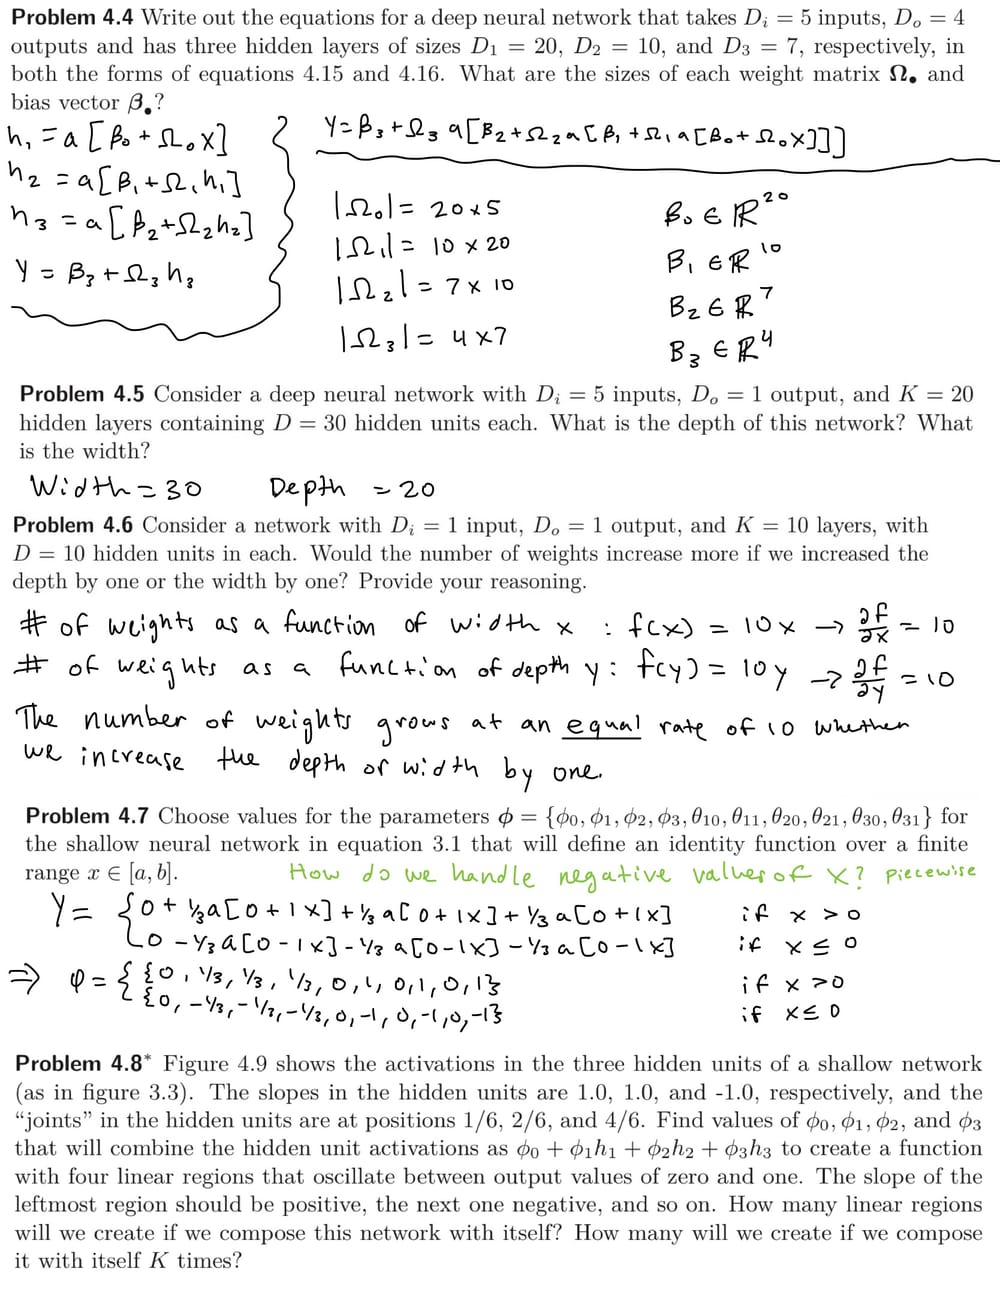 Problem 4.4 Write out the equations for a deep neural network that takes Dᵢ = 5 inputs, Dₒ = 4
outputs and has three hidden layers of sizes D₁ = 20, D₂ = 10, and D₃ = 7, respectively, in
both the forms of equations 4.15 and 4.16. What are the sizes of each weight matrix Ω• and
bias vector β•?
h₁ = a[β₀ + Ω₀x]
h₂ = a[β₁ + Ω₁h₁]
h₃ = a[β₂ + Ω₂h₂]
y = β₃ + Ω₃h₃
y = β₃ + Ω₃ a[β₂ + Ω₂ a[β₁ + Ω₁ a[β₀ + Ω₀x]]]
|Ω₀| = 20 x 5
|Ω₁| = 10 x 20
|Ω₂| = 7 x 10
|Ω₃| = 4 x 7
β₀ ∈ ℝ²⁰
β₁ ∈ ℝ¹⁰
β₂ ∈ ℝ⁷
β₃ ∈ ℝ⁴
Problem 4.5 Consider a deep neural network with Dᵢ = 5 inputs, Dₒ = 1 output, and K = 20
hidden layers containing D = 30 hidden units each. What is the depth of this network? What
is the width?
Width = 30 Depth = 20
Problem 4.6 Consider a network with Dᵢ = 1 input, Dₒ = 1 output, and K = 10 layers, with
D = 10 hidden units in each. Would the number of weights increase more if we increased the
depth by one or the width by one? Provide your reasoning.
# of weights as a function of width x : f(x) = 10x → ∂f/∂x = 10
# of weights as a function of depth y: f(y) = 10y → ∂f/∂y = 10
The number of weights grows at an equal rate of 10 whether
we increase the depth or width by one.
Problem 4.7 Choose values for the parameters ϕ = {ϕ₀, ϕ₁, ϕ₂, ϕ₃, θ₁₀, θ₁₁, θ₂₀, θ₂₁, θ₃₀, θ₃₁} for
the shallow neural network in equation 3.1 that will define an identity function over a finite
range x ∈ [a, b].
How do we handle negative values of x? Piecewise
y = { 0 + ⅓a[0 + 1x] + ⅓a[0 + 1x] + ⅓a[0 + 1x] if x > 0
0 - ⅓a[0 - 1x] - ⅓a[0 - 1x] - ⅓a[0 - 1x] if x ≤ 0
⇒ φ = { {0, ⅓, ⅓, ⅓, 0, 1, 0, 1, 0, 1} if x > 0
{0, -⅓, -⅓, -⅓, 0, -1, 0, -1, 0, -1} if x ≤ 0
Problem 4.8* Figure 4.9 shows the activations in the three hidden units of a shallow network
(as in figure 3.3). The slopes in the hidden units are 1.0, 1.0, and -1.0, respectively, and the
“joints” in the hidden units are at positions 1/6, 2/6, and 4/6. Find values of ϕ₀, ϕ₁, ϕ₂, and ϕ₃
that will combine the hidden unit activations as ϕ₀ + ϕ₁h₁ + ϕ₂h₂ + ϕ₃h₃ to create a function
with four linear regions that oscillate between output values of zero and one. The slope of the
leftmost region should be positive, the next one negative, and so on. How many linear regions
will we create if we compose this network with itself? How many will we create if we compose
it with itself K times?